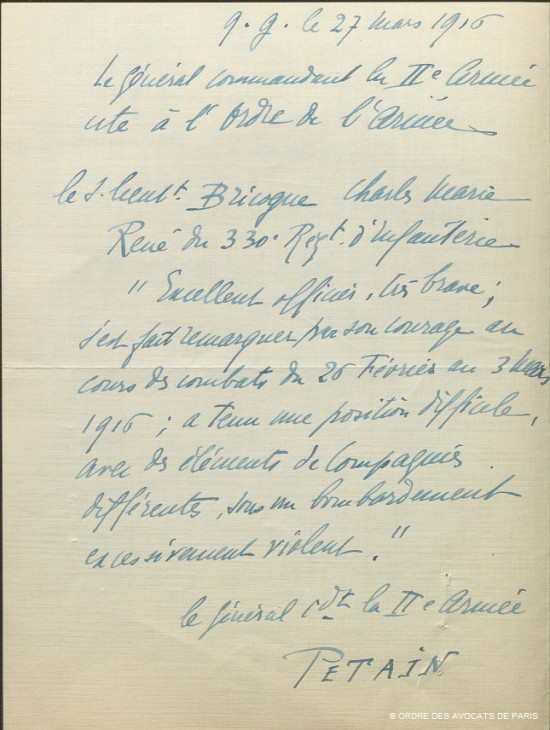 q. g. le 27 mars 1916
Le général commandant la IIe Armée
cite à l'Ordre de l'Armée
le S. lieutt. Bricogne Charles Marie
René du 330e Regt. d'Infanterie
" Excellent officier, très brave ;
s'est fait remarquer par son courage au
cours des combats du 26 Février au 3 Mars
1916 ; a tenu une position difficile,
avec des éléments de Compagnies
différentes, sous un bombardement
excessivement violent. "
le général Cdt la IIe Armée
PETAIN
© ORDRE DES AVOCATS DE PARIS